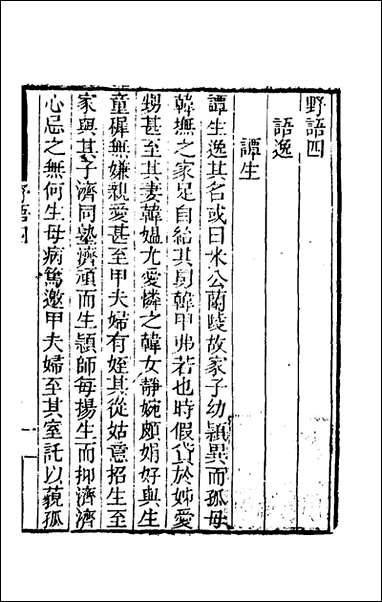 野語四
語逸
譚生
譚生逸其名或曰米公蘭陵故家子幼穎異而孤母
韓撫之家足自給其舅韓甲弗若也時假貸於姊愛
甥甚至其妻韓媼尤愛憐之韓女靜婉頗娟好與生
童穉無嫌親愛甚至甲夫婦有姪其從姑意招生至
家與其子濟同塾濟頑而生穎師每揚生而抑濟濟
心忌之無何生母病篤邀甲夫婦至其室託以藐孤
野語四
一